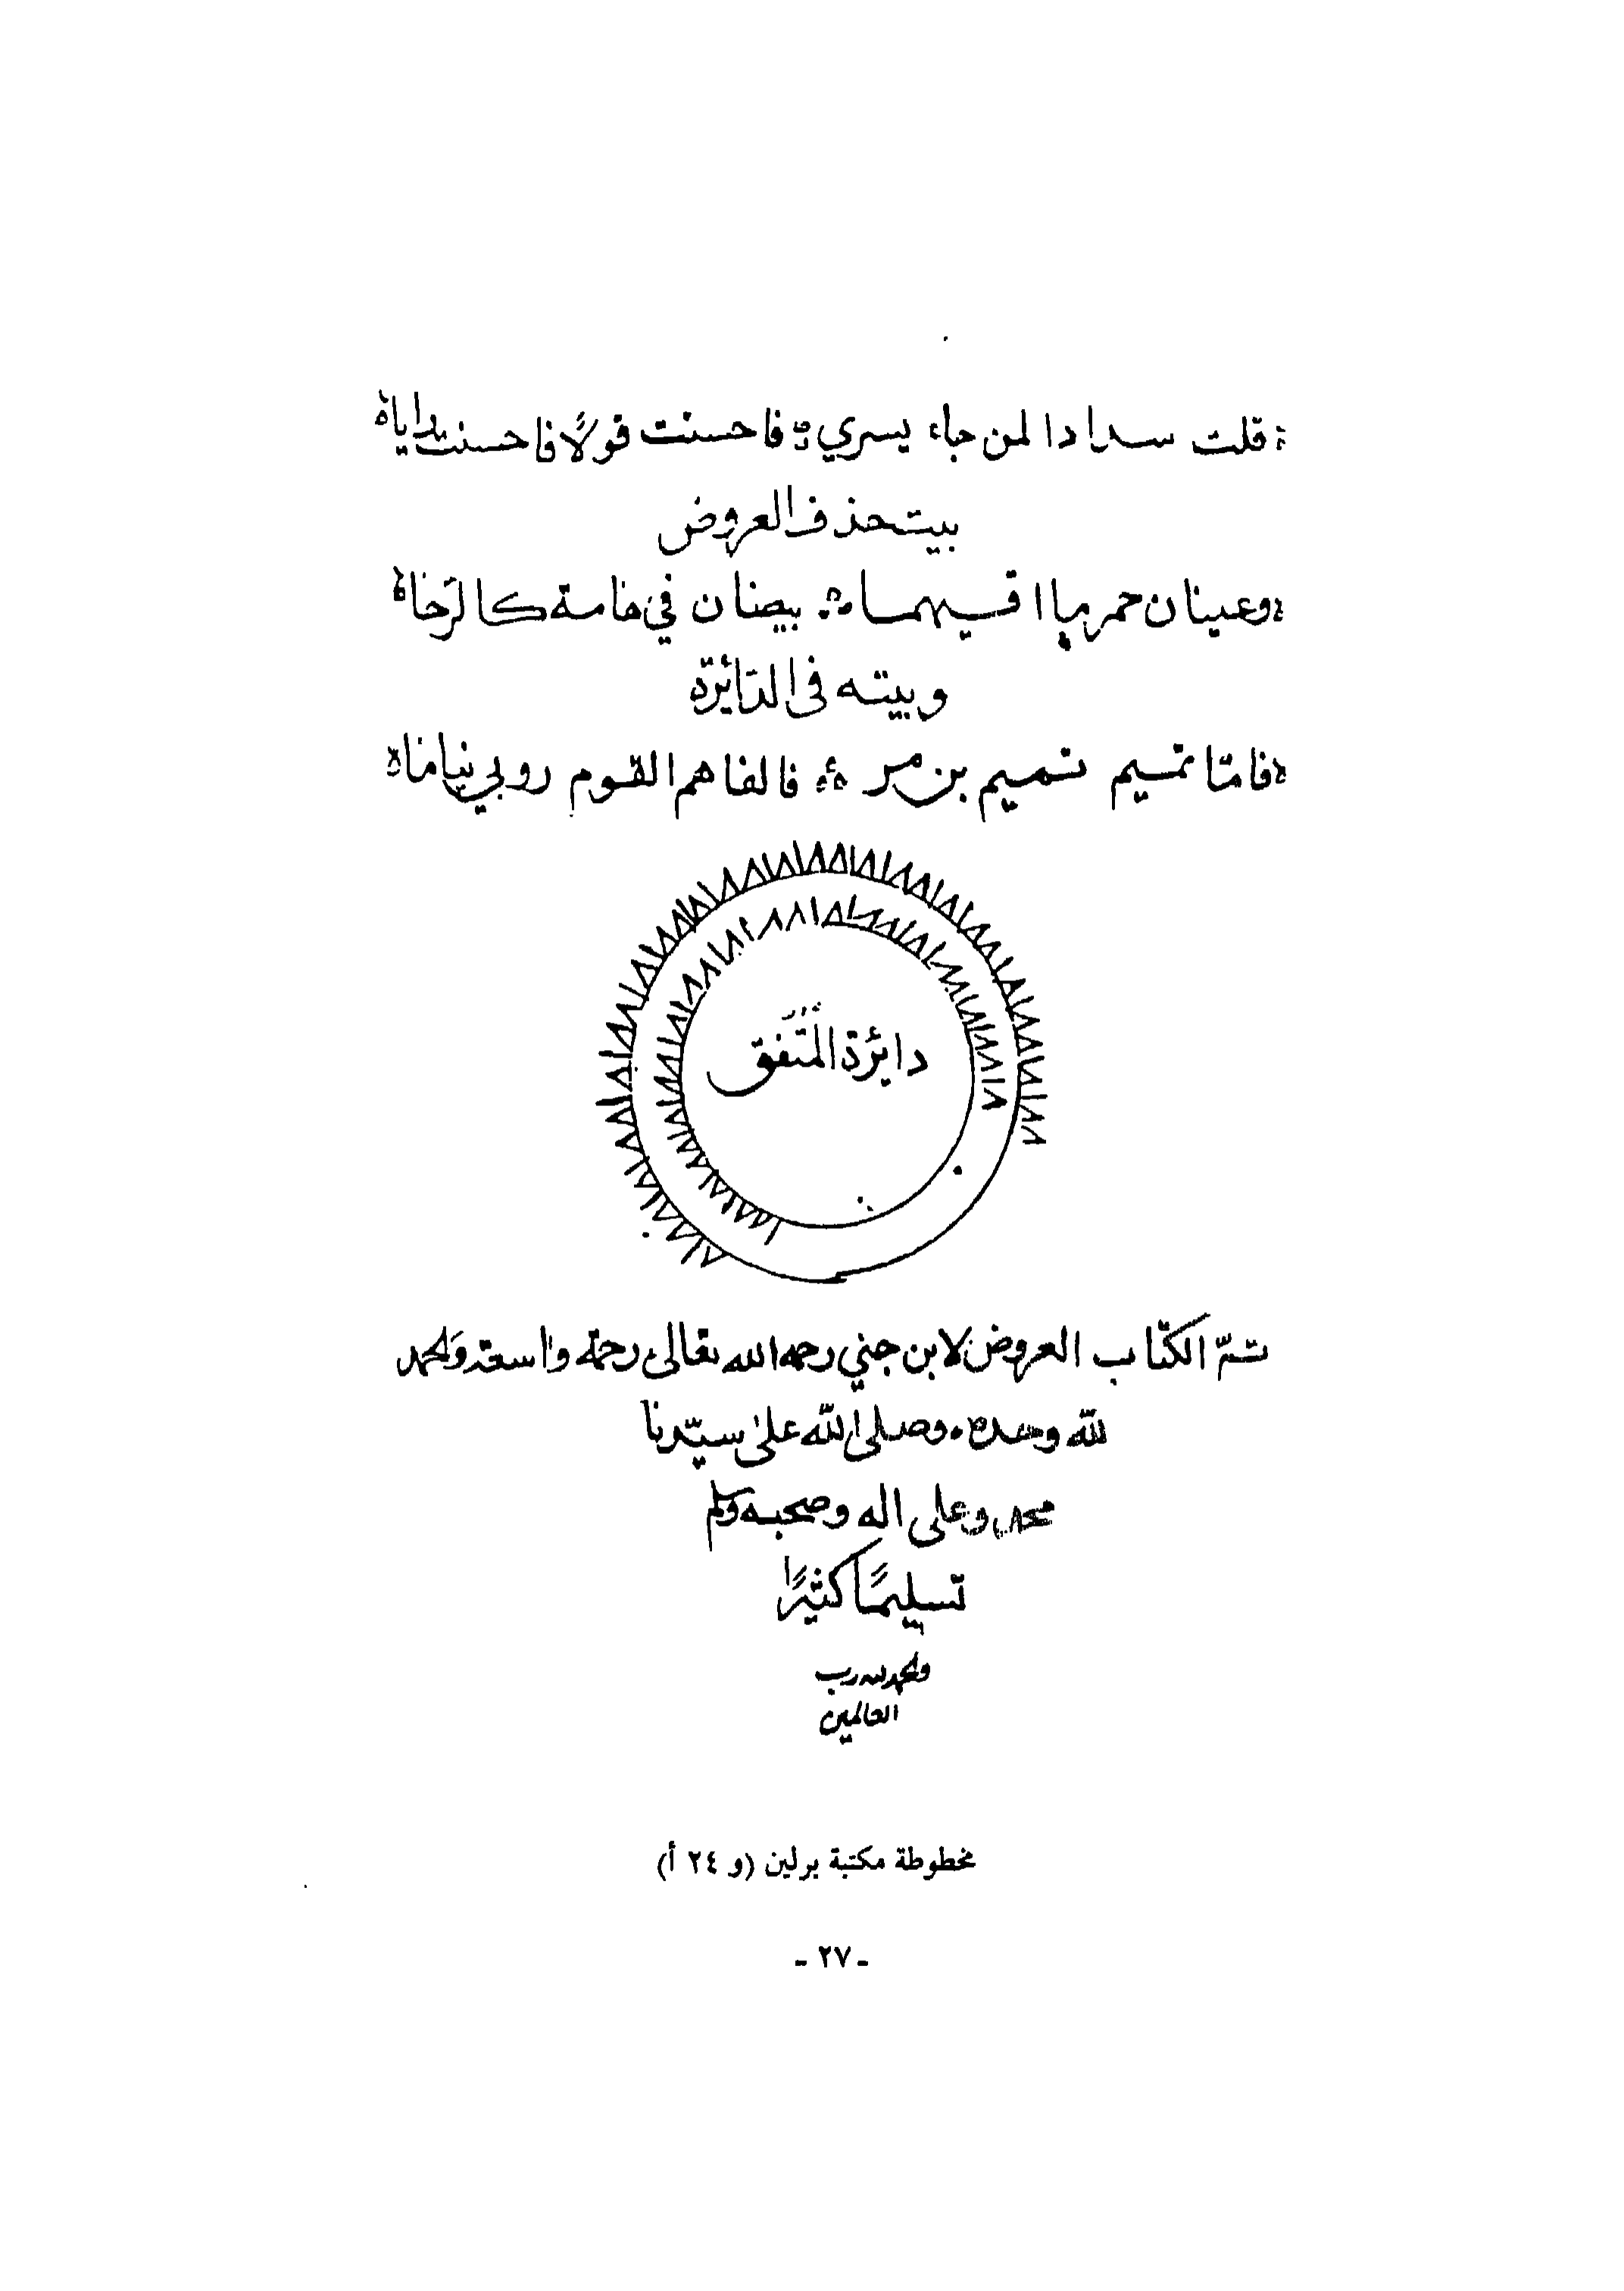 قلت سدادا لمن جاء يسري فاحسنت قولًا فاحسنت رايا
بيت حذف العروض
وعينان حمر مااقيهما بيضان في هامة كالرّخا
وبيته في الدّائرة
فامّا تميم تميم بن مر فالفاهم القوم روبي نياما
دايرة المتّفق
تمّ الكتاب العروض لابن جني رحمه الله تعالى رحمة واسعة والحمد
للّه وحده وصلى اللّه على سيّدنا
محمد وعلى اله وصحبه وسلم
تسليمًا كثيرًا
والحمد لله رب
العالمين
مخطوطة مكتبة برلين (و ٢٤ أ)
- ٢٧ -